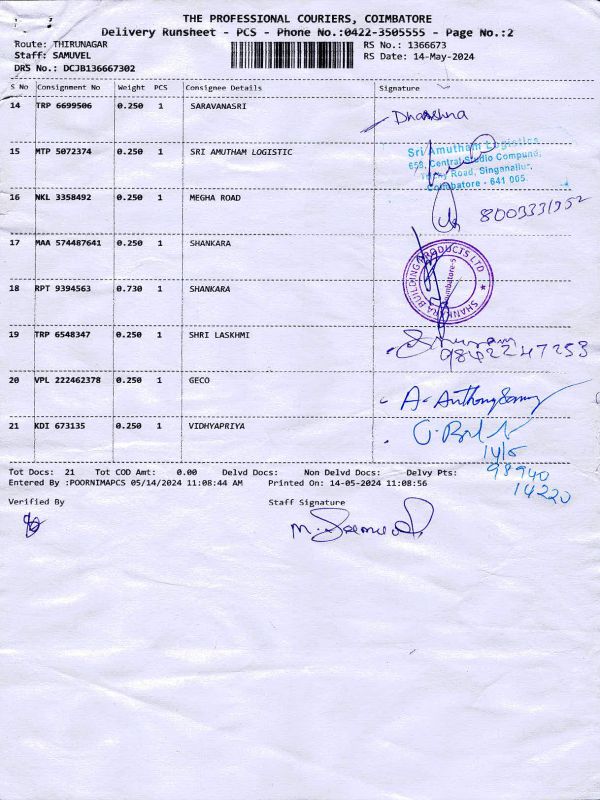 THE PROFESSIONAL COURIERS, COIMBATORE
Delivery Runsheet - PCS - Phone No.:0422-3505555 - Page No.:2
Route: THIRUNAGAR RS No.: 1366673
Staff: SAMUVEL RS Date: 14-May-2024
DRS No.: DCJB136667302
S No Consignment No Weight PCS Consignee Details Signature
14 TRP 6699506 0.250 1 SARAVANASRI
15 MTP 5072374 0.250 1 SRI AMUTHAM LOGISTIC
Sri Amutham Logistics
Central Studio Compund,
Road, Singanallur,
Coimbatore - 641 005.
16 NKL 3358492 0.250 1 MEGHA ROAD
17 MAA 574487641 0.250 1 SHANKARA
SHANKARA BUILDING PRODUCTS LTD
Coimbatore-5
18 RPT 9394563 0.730 1 SHANKARA
19 TRP 6548347 0.250 1 SHRI LASKHMI
9842247253
20 VPL 222462378 0.250 1 GECO A. Anthony Samy
21 KDI 673135 0.250 1 VIDHYAPRIYA
14/5
98940
14220
Tot Docs: 21 Tot COD Amt: 0.00 Delvd Docs: Non Delvd Docs: Delvy Pts:
Entered By :POORNIMAPCS 05/14/2024 11:08:44 AM Printed On: 14-05-2024 11:08:56
Verified By Staff Signature